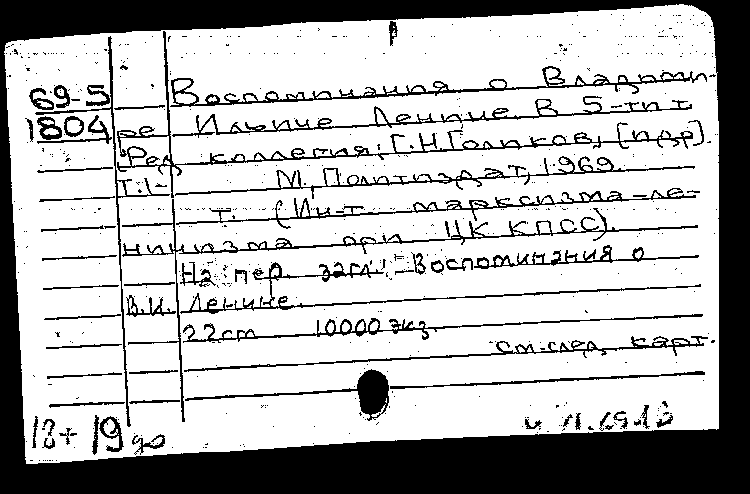 69-5
1804
Воспоминания о Владими-
ре Ильиче Ленине. В 5-ти т.
[Ред. коллегия: Г.Н.Голиков, [и др.]
Т.1- М., Политиздат, 1969.
т. (Ин-т марксизма-ле-
нинизма при ЦК КПСС).
На пер. загл.: Воспоминания о
В.И. Ленине.
22cm 10000 экз.
см.след. карт.
18+ 19